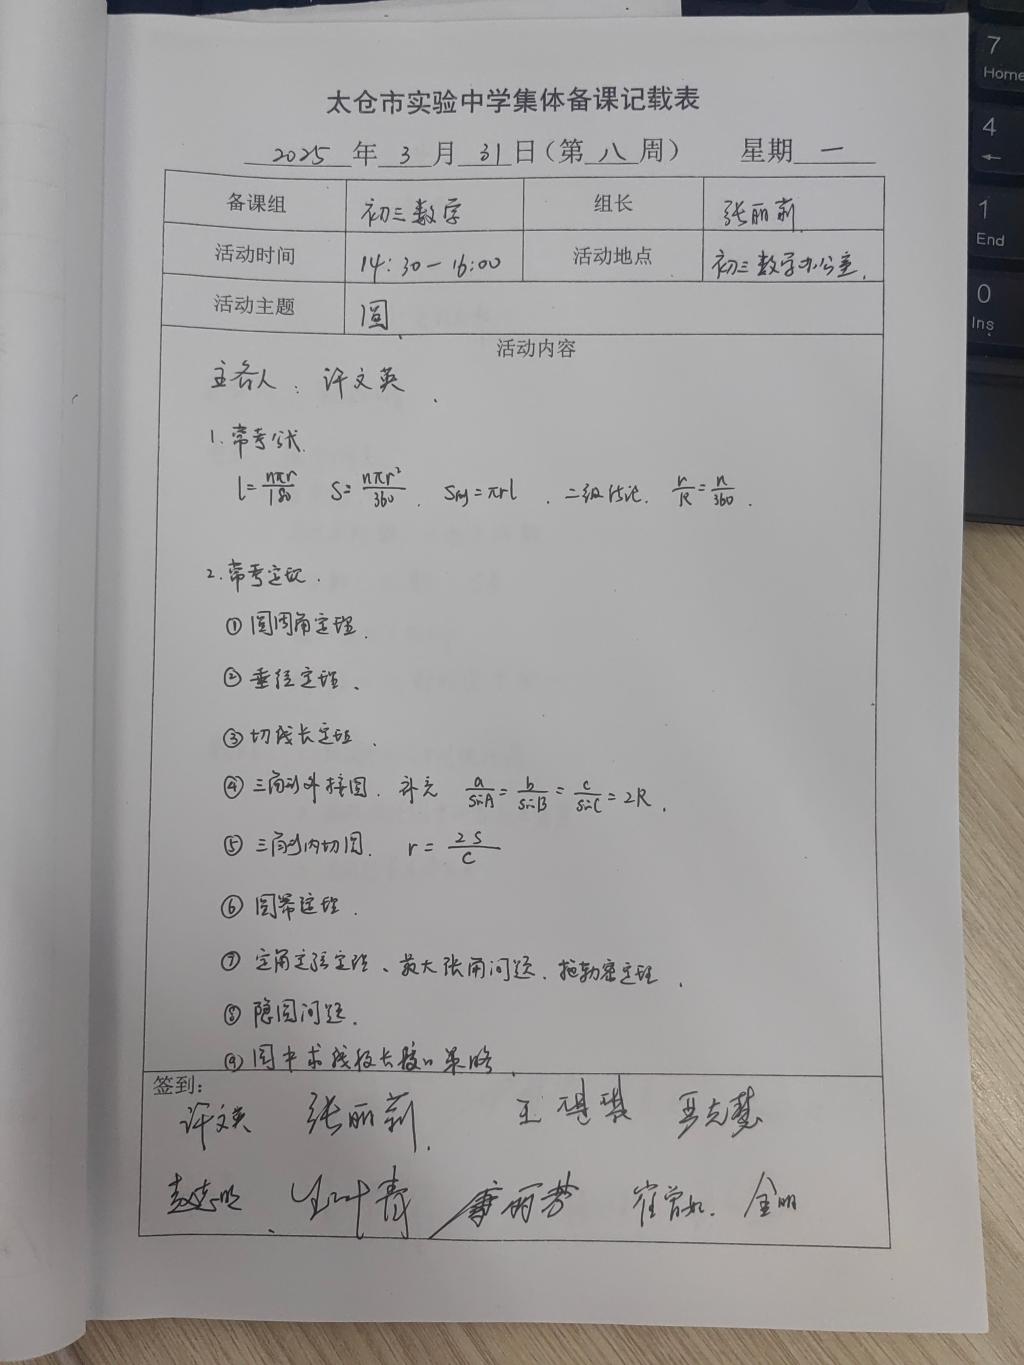 太仓市实验中学集体备课记载表
2025 年 3 月 31 日（第 八 周） 星期 一
备课组 初三数学 组长 张丽莉
活动时间 14:30-16:00 活动地点 初三数学办公室.
活动主题 圆.
活动内容
主备人：许文英.
1.常考公式.
l=nπr/180 S=nπr²/360. S侧=πrl. 二级结论. r/R=n/360.
2.常考定理.
①圆周角定理.
②垂径定理.
③切线长定理.
④三角形外接圆. 补充 a/sinA=b/sinB=c/sinC=2R.
⑤三角形内切圆. r=2S/C
⑥圆幂定理.
⑦定角定弦定理、最大张角问题、托勒密定理.
⑧隐圆问题.
⑨圆中求线段长度的策略.
签到：
许文英 张丽莉. 王
叶青 廖丽芳 崔曾如. 金明
7
Home
4
←
1
End
0
Ins